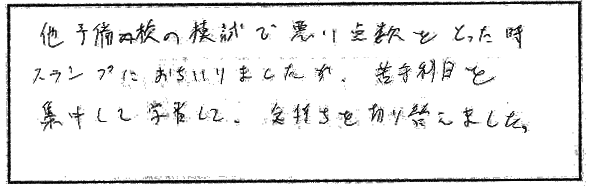 他予備校の模試で悪い点数をとった時
スランプにおちいりましたが、苦手科目を
集中して学習して、気持ちを切り替えました。